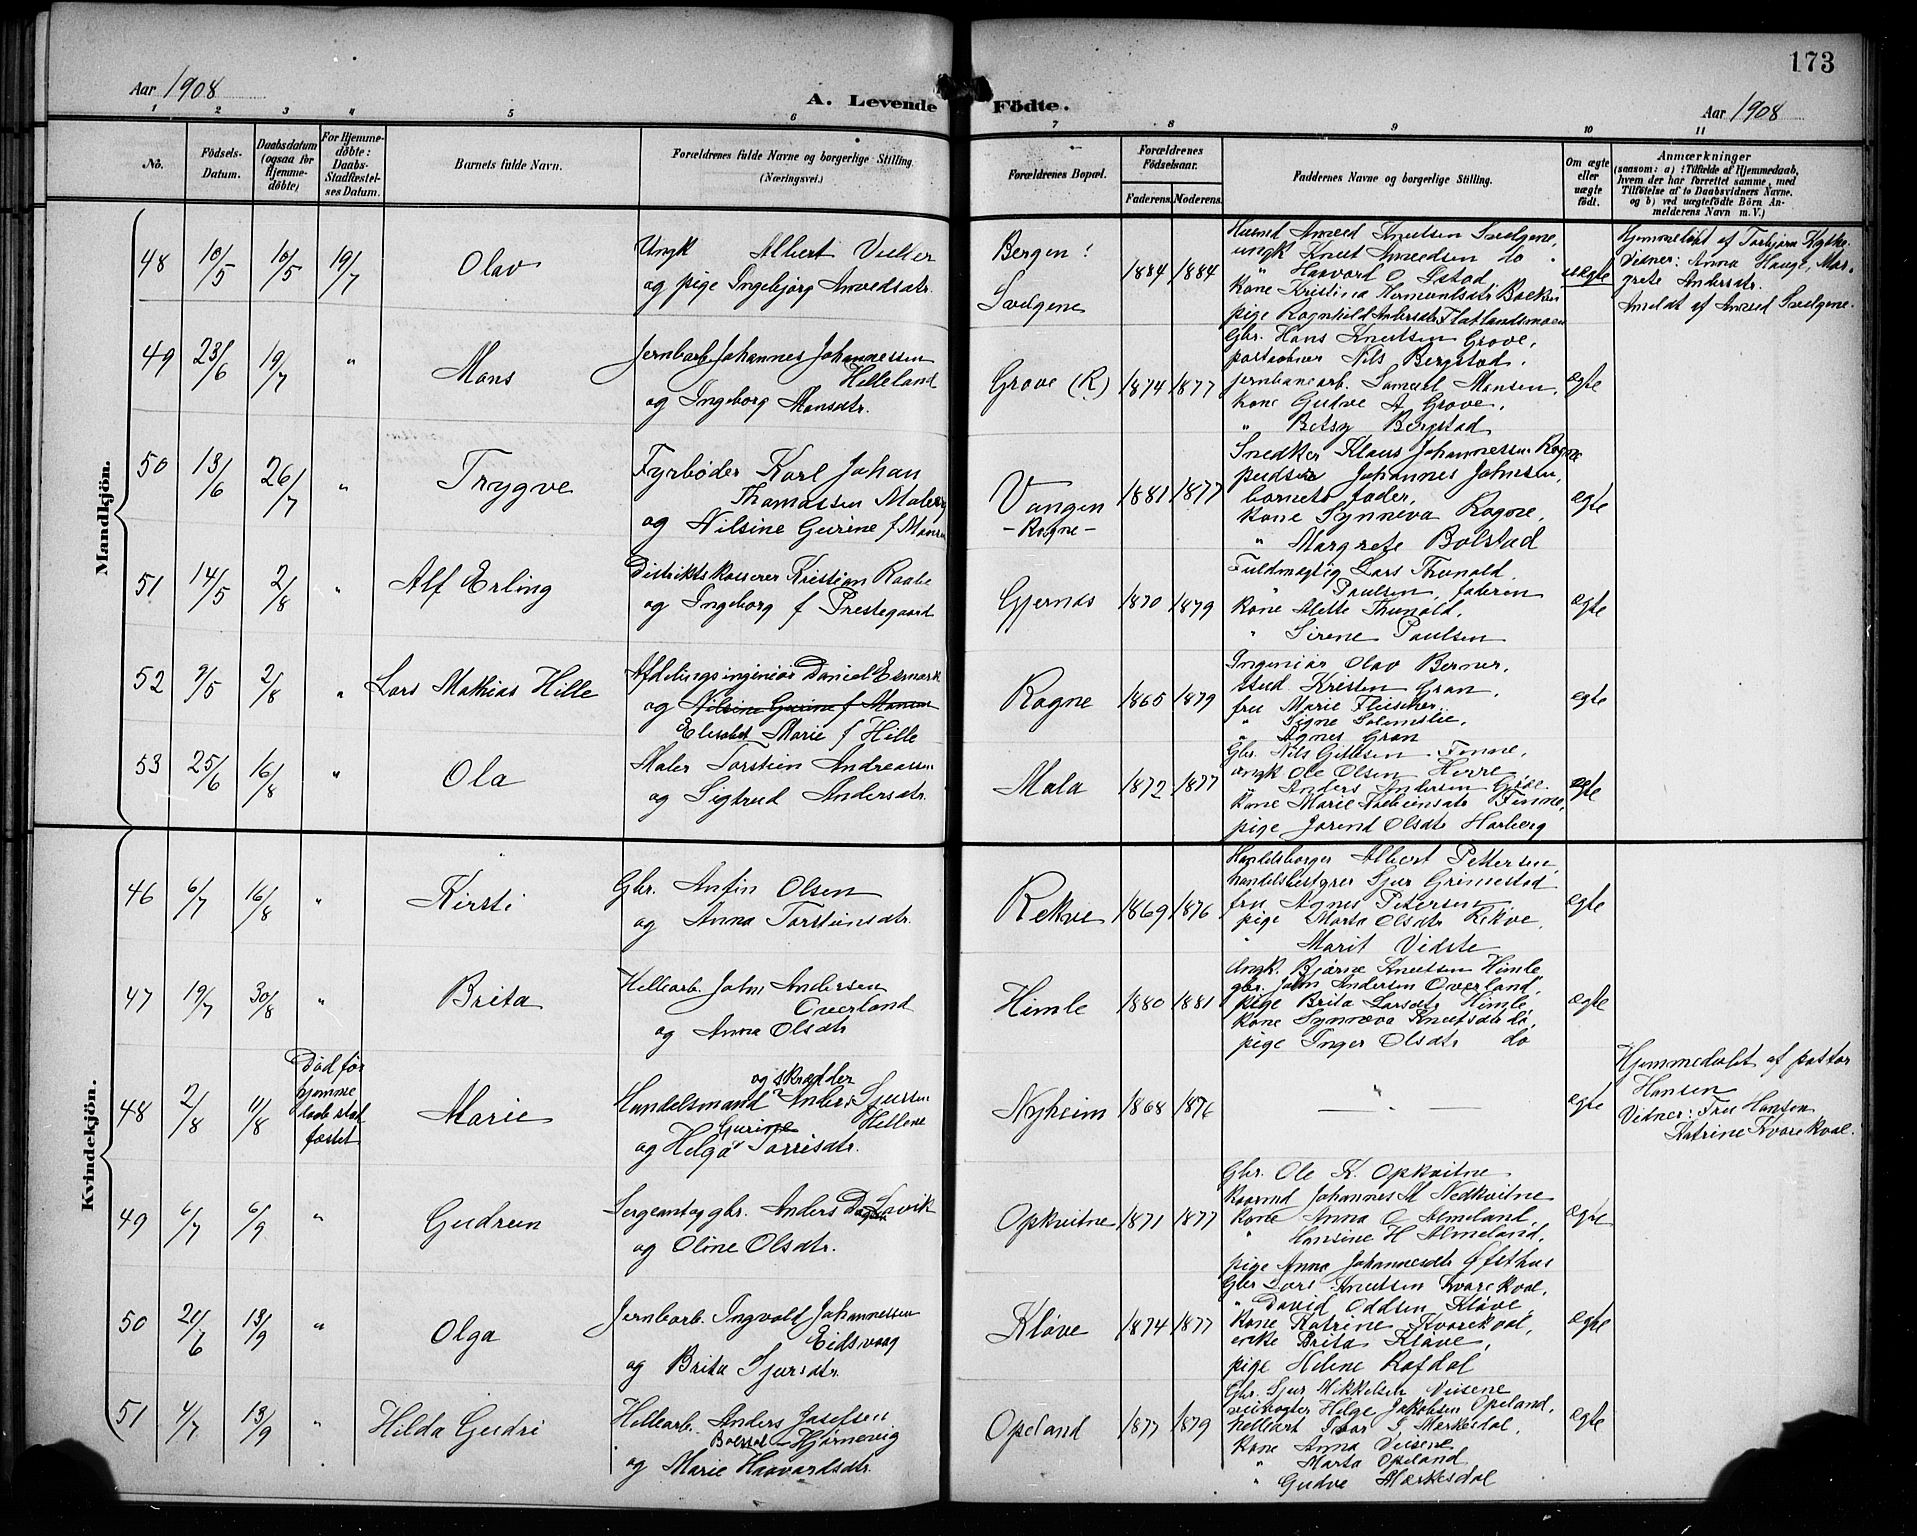 173
Aar 1908
A. Levende Födte.
Aar 1908
1 2 3 4 5 6 7 8 9 10 11
No.
Födsels-
Datum.
Daabsdatum
(ogsaa for
Hjemme-
döbte)
For Hjemme-
döbte:
Daabs-
Stadfæstel-
ses Datum.
Barnets fulde Navn.
Forældrenes fulde Navne og borgerlige Stilling.
(Næringsvei.)
Forældrenes Bopæl.
Forældrenes
Födselsaar.
Faderens. Moderens.
Faddernes Navne og borgerlige Stilling.
Om ægte
eller
uægte
födt.
Anmærkninger
(saasom: a) i Tilfælde af Hjemmedaab,
hvem der har forrettet samme, med
Tilföielse af to Daabsvidners Navne.
og b) ved uægtefödte Börn An-
melderens Navn m. V.)
Mandkjön.
48 10/5 10/5 19/7 Olav
Ungk Albert
og pige Ingebjørg Amvedsdtr.
Bergen
Svelgene
1884 1884
ungk Knut Amvedsen do
" Haavard O
Kone Kristina
pige Ragnhild Andersdtr Flatlandsmoen
uægte
Hjemmedøbt af Torbjørn
Vidner: Anna Hauge, Mar-
grete Andersdtr.
Anmeldt af Amved Svelgene.
49 23/6 19/7 " Mons
Jernbarb. Johannes Johannessen
Helleland
og Ingeborg Monsdtr.
Grove (R) 1874 1877
Gbr. Hans Knutsen Grove,
postaabner Nils Bergstad.
jernbanearb. Samuel Monsen,
Kone Gudve A Grove,
" Betsy Bergstad
ægte
50 13/6 26/7 " Trygve
Fyrbøder Karl Johan
Thomassen
og Nilsine Gurine f
Vangen
- Rogne -
1881 1877
Snedker Klaus Johannessen Rogne
pudser Johannes Johnsen,
barnets fader,
Kone Synneva Rogne,
" Margrete Bolstad
ægte
51 14/5 2/8 " Alf Erling
Distriktskasserer Kristian Raabe
og Ingeborg f Prestegaard
Gjernes 1870 1879
Fuldmægtig Lars Thunold.
" Paulsen, faderen
Kone Mette Thunold,
" Sirene Paulsen
ægte
52 9/5 2/8 " Lars Mathias Hille
Afdelingsingeniør Daniel
og Nilsine Gurine f
Elisabet Marie f Hille
Rogne 1865 1879
Ingeniør Olav Berner,
stud. Kristen Gran,
fru Marie Fleischer.
" Signe
" Agnes Gran
ægte
53 25/6 16/8 " Ola
Maler Torstein Andreassen
og Sigtrud Andersdtr.
Mala 1872 1877
Gbr. Nils Gittlesen Finne,
ungk Ole Olsen Herre
" Anders Andersen
Kone Marie Finne,
pige Jorend Olsdtr Horberg
ægte
Kvindekjön.
46 6/7 16/8 " Kirsti
Gbr. Anfin Olsen
og Anna Torsteinsdtr.
Rekve 1869 1876
Handelsborger Albert Pettersen
handelsbestyrer Sjur Grimestad
fru Agnes Petersen
pige Marta Olsdtr Rekve,
" Marit Vidste
ægte
47 19/7 30/8 " Brita
Hellearb. John Andersen
Øverland
og Anna Olsdtr
Himle 1880 1881
Ungk. Bjørne Knutsen Himle
gbr. John Andersen Øverland,
pige Brita Larsdtr Himle
Kone Synneva Knutsdtr do,
pige Inger Olsdtr do
ægte
48 2/8 11/8
Død før
hjemme
daab stad
fæstet
Marie
og skrædder
Handelsmand Sjursen
Gurine Hellene
og Helga Torrisdtr.
Nyheim 1868 1876
— " —
ægte
Hjemmedøbt af pastor
Hansen
Vidner: Fru Hansen
Katrine Kvarekval.
49 6/7 6/9 " Gudrun
Sergeant og gbr. Anders Lavik
og Oline Olsdtr.
Opkvitne 1871 1877
Gbr. Ole K. Opkvitne
Kaarmd Johannes M Nedkvitne
Kone Anna O Almeland,
" Hansine H Almeland,
pige Anna Johannesdtr Øfsthus
ægte
50 21/6 13/9 " Olga
Jernbarb. Ingvald Johannessen
Eidsvaag
og Brita Sjursdtr.
Kløve 1874 1877
Gbr Lars Knutsen Kvarekval,
" David Oddsen Kløve,
Kone Katrine Kvarekval,
enke Brita Kløve,
pige Helene Rafdal
ægte
51 4/7 13/9 " Hilda Gudri
Hellearb. Anders Josefsen
Bolstad - Hjørnevig
og Marie Haavardsdtr.
Opeland 1877 1879
Gbr. Sjur Mikkelsen Veisene
veivogter Helge Jakobsen Opeland,
hellearb Ivar S. Mørkesdal,
Kone Anna Veisene
" Marta Opeland
" Gudve Mørkesdal
ægte